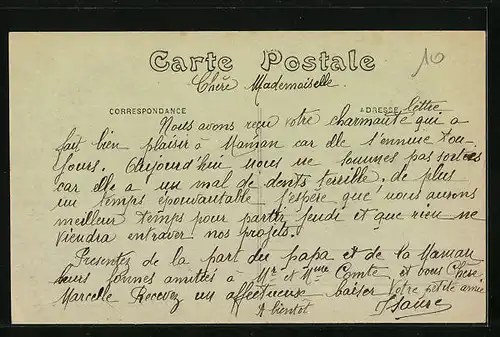 Carte Postale
10
Chère Mademoiselle.
CORRESPONDANCE
ADRESSE
Nous avons reçu votre charmante lettre qui a
fait bien plaisir à Maman car elle s'ennuie tou-
jours. Aujourd'hui nous ne sommes pas sorties
car elle a un mal de dents terrible. de plus
un temps épouvantable j'espère que nous aurons
meilleur temps pour partir jeudi et que rien ne
viendra entraver nos projets.
Présentez de la part du papa et de la Maman
leurs bonnes amitiés à Mr et Mme Comte et vous Chère
Marcelle Recevez un affectueuse baiser Votre petite amie
A bientot Isaure